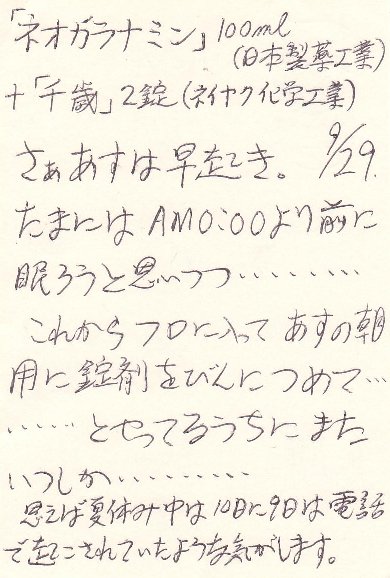 「ネオガラナミン」100ml
(日本製薬工業)
+「千歳」2錠(ネイヤク化学工業)
9/29.
さぁあすは早起き。
たまにはAM0:00より前に
眠ろうと思いつつ‥‥‥‥
これからフロに入ってあすの朝
用に錠剤をびんにつめて‥‥
‥‥‥とやってるうちにまた
いつしか‥‥‥‥‥
思えば夏休み中は10日に9日は電話
で起こされていたような気がします。